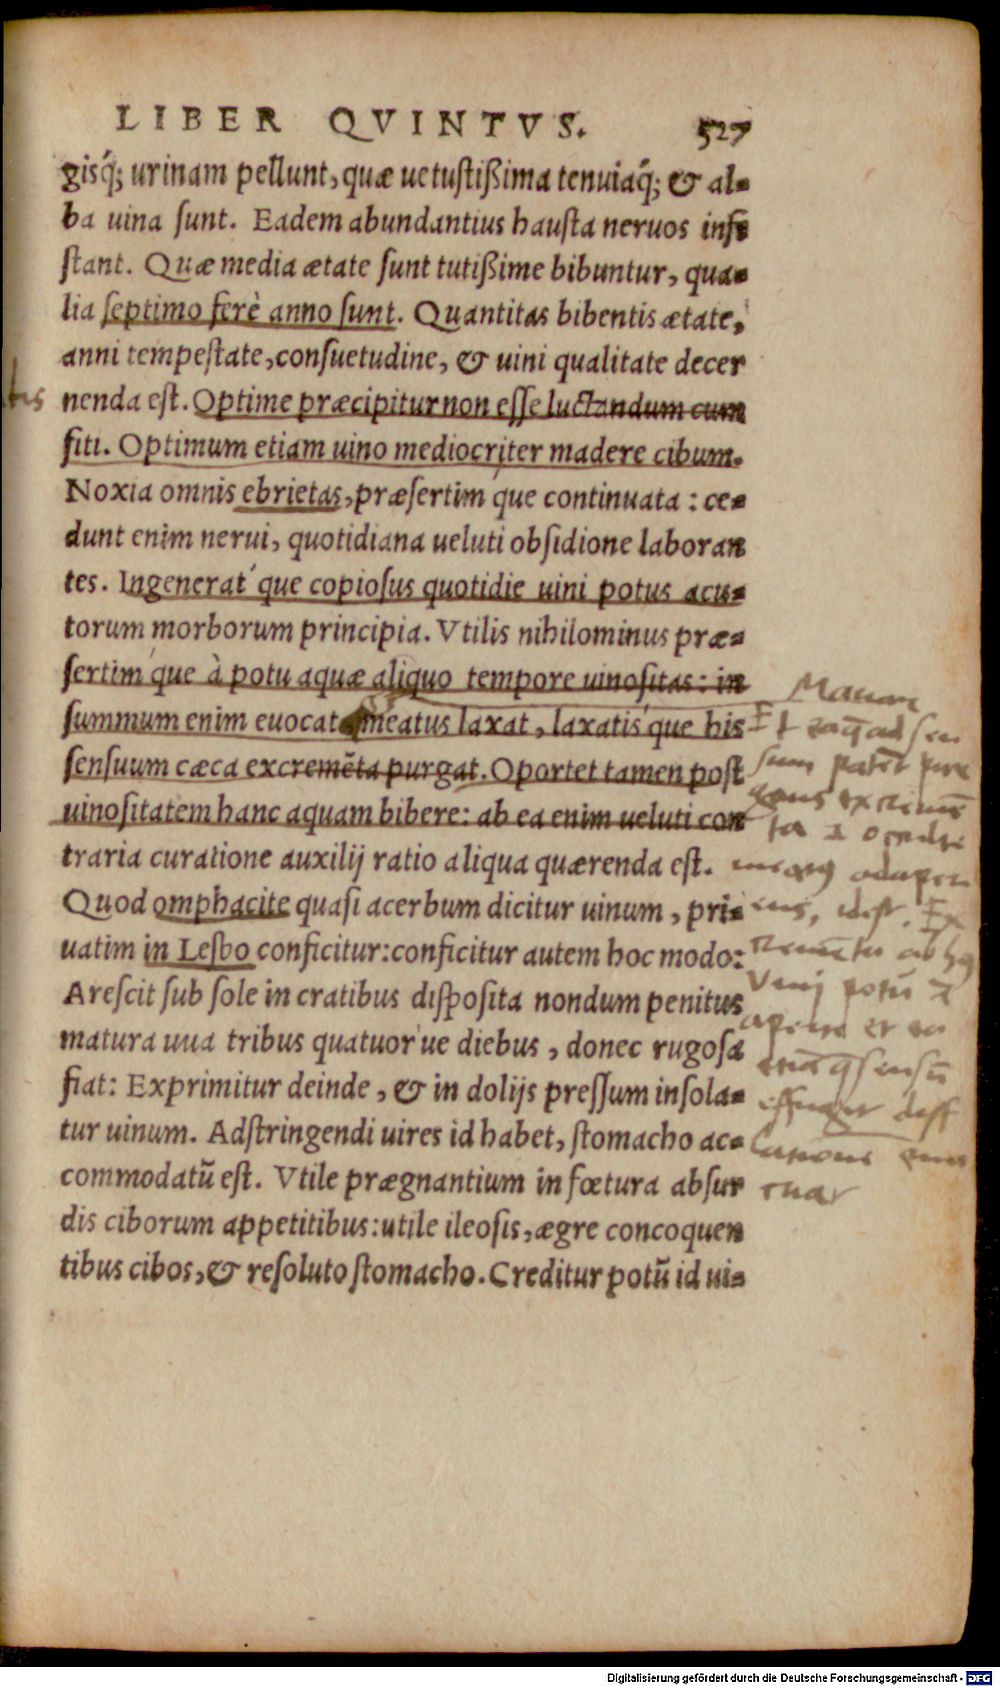 LIBER QVINTVS. 527
gisq́; urinam pellunt, quæ uetustißima tenuiaq́; & al-
ba uina sunt. Eadem abundantius hausta neruos infe
stant. Quæ media ætate sunt tutißime bibuntur, qua-
lia septimo ferè anno sunt. Quantitas bibentis ætate,
anni tempestate, consuetudine, & uini qualitate decer
nenda est. Optime præcipitur non esse luctandum cum
siti. Optimum etiam uino mediocriter madere cibum.
Noxia omnis ebrietas, præsertim´que continuata: ce-
dunt enim nerui, quotidiana ueluti obsidione laboran
tes. Ingenerat´que copiosus quotidie uini potus acu-
torum morborum principia. Vtilis nihilominus præ-
sertim´que à potu aquæ aliquo tempore uinositas: in
summum enim euocat meatus laxat, laxatis´que his
sensuum cæca excremēta purgat. Oportet tamen post
uinositatem hanc aquam bibere: ab ea enim ueluti con
traria curatione auxilij ratio aliqua quærenda est.
Quod omphacite quasi acerbum dicitur uinum, pri-
uatim in Lesbo conficitur: conficitur autem hoc modo:
Arescit sub sole in cratibus disposita nondum penitus
matura uua tribus quatuor´ue diebus, donec rugosa
fiat: Exprimitur deinde, & in dolijs pressum insola-
tur uinum. Adstringendi uires id habet, stomacho ac-
commodatū est. Vtile prægnantium in fœtura absur
dis ciborum appetitibus: utile ileosis, ægre concoquen
tibus cibos, & resoluto stomacho. Creditur potū id ui-
Digitalisierung gefördert durch die Deutsche Forschungsgemeinschaft - DFG